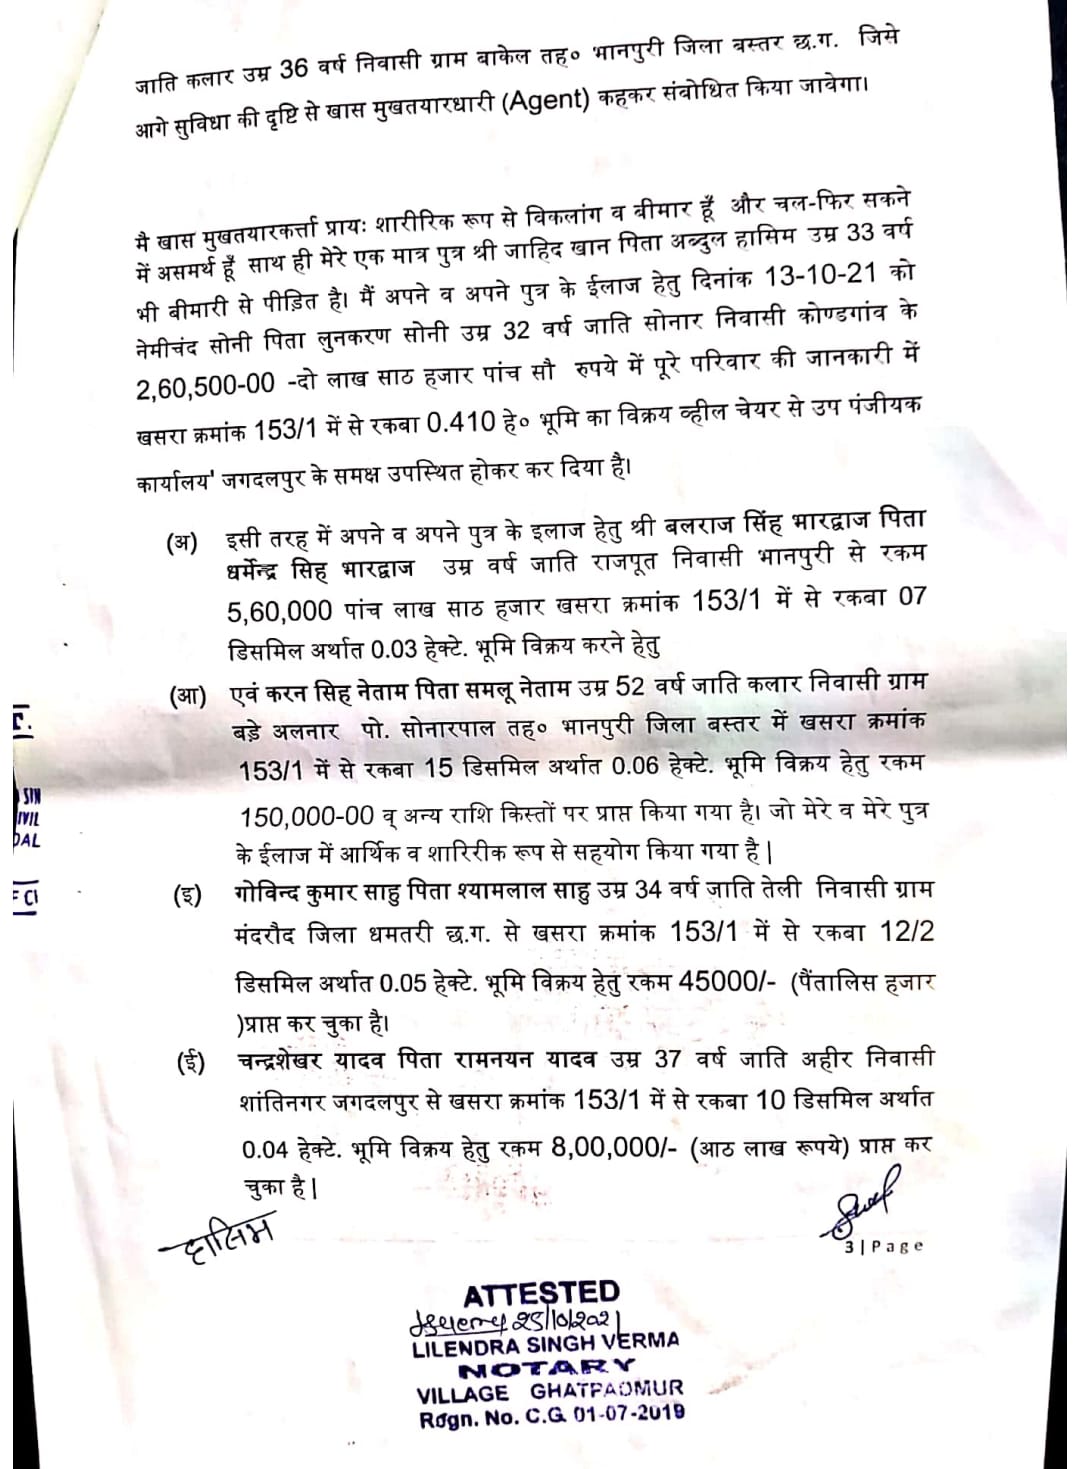 जाति कलार उम्र 36 वर्ष निवासी ग्राम बाकेल तह० भानपुरी जिला बस्तर छ.ग. जिसे
आगे सुविधा की दृष्टि से खास मुखतयारधारी (Agent) कहकर संबोधित किया जावेगा।
मै खास मुखतयारकर्त्ता प्रायः शारीरिक रूप से विकलांग व बीमार हूँ और चल-फिर सकने
में असमर्थ हूँ साथ ही मेरे एक मात्र पुत्र श्री जाहिद खान पिता अब्दुल हासिम उम्र 33 वर्ष
भी बीमारी से पीड़ित है। मैं अपने व अपने पुत्र के ईलाज हेतु दिनांक 13-10-21 को
नेमीचंद सोनी पिता लुनकरण सोनी उम्र 32 वर्ष जाति सोनार निवासी कोण्डगांव के
2,60,500-00 -दो लाख साठ हजार पांच सौ रुपये में पूरे परिवार की जानकारी में
खसरा क्रमांक 153/1 में से रकबा 0.410 हे० भूमि का विक्रय व्हील चेयर से उप पंजीयक
कार्यालय' जगदलपुर के समक्ष उपस्थित होकर कर दिया है।
(अ) इसी तरह में अपने व अपने पुत्र के इलाज हेतु श्री बलराज सिंह भारद्वाज पिता
धर्मेन्द्र सिह भारद्वाज उम्र वर्ष जाति राजपूत निवासी भानपुरी से रकम
5,60,000 पांच लाख साठ हजार खसरा क्रमांक 153/1 में से रकबा 07
डिसमिल अर्थात 0.03 हेक्टे. भूमि विक्रय करने हेतु
(आ) एवं करन सिह नेताम पिता समलू नेताम उम्र 52 वर्ष जाति कलार निवासी ग्राम
बड़े अलनार पो. सोनारपाल तह० भानपुरी जिला बस्तर में खसरा क्रमांक
153/1 में से रकबा 15 डिसमिल अर्थात 0.06 हेक्टे. भूमि विक्रय हेतु रकम
150,000-00 व् अन्य राशि किस्तों पर प्राप्त किया गया है। जो मेरे व मेरे पुत्र
के ईलाज में आर्थिक व शारिरीक रूप से सहयोग किया गया है |
(इ) गोविन्द कुमार साहु पिता श्यामलाल साहु उम्र 34 वर्ष जाति तेली निवासी ग्राम
मंदरौद जिला धमतरी छ.ग. से खसरा क्रमांक 153/1 में से रकबा 12/2
डिसमिल अर्थात 0.05 हेक्टे. भूमि विक्रय हेतु रकम 45000/- (पैंतालिस हजार
)प्राप्त कर चुका है।
(ई) चन्द्रशेखर यादव पिता रामनयन यादव उम्र 37 वर्ष जाति अहीर निवासी
शांतिनगर जगदलपुर से खसरा क्रमांक 153/1 में से रकबा 10 डिसमिल अर्थात
0.04 हेक्टे. भूमि विक्रय हेतु रकम 8,00,000/- (आठ लाख रूपये) प्राप्त कर
चुका है |
हासिम
3 | Page
ATTESTED
25/10/2021
LILENDRA SINGH VERMA
NOTARY
VILLAGE GHATPADMUR
Rdgn. No. C.G. 01-07-2019
SIN
IVIL
DAL